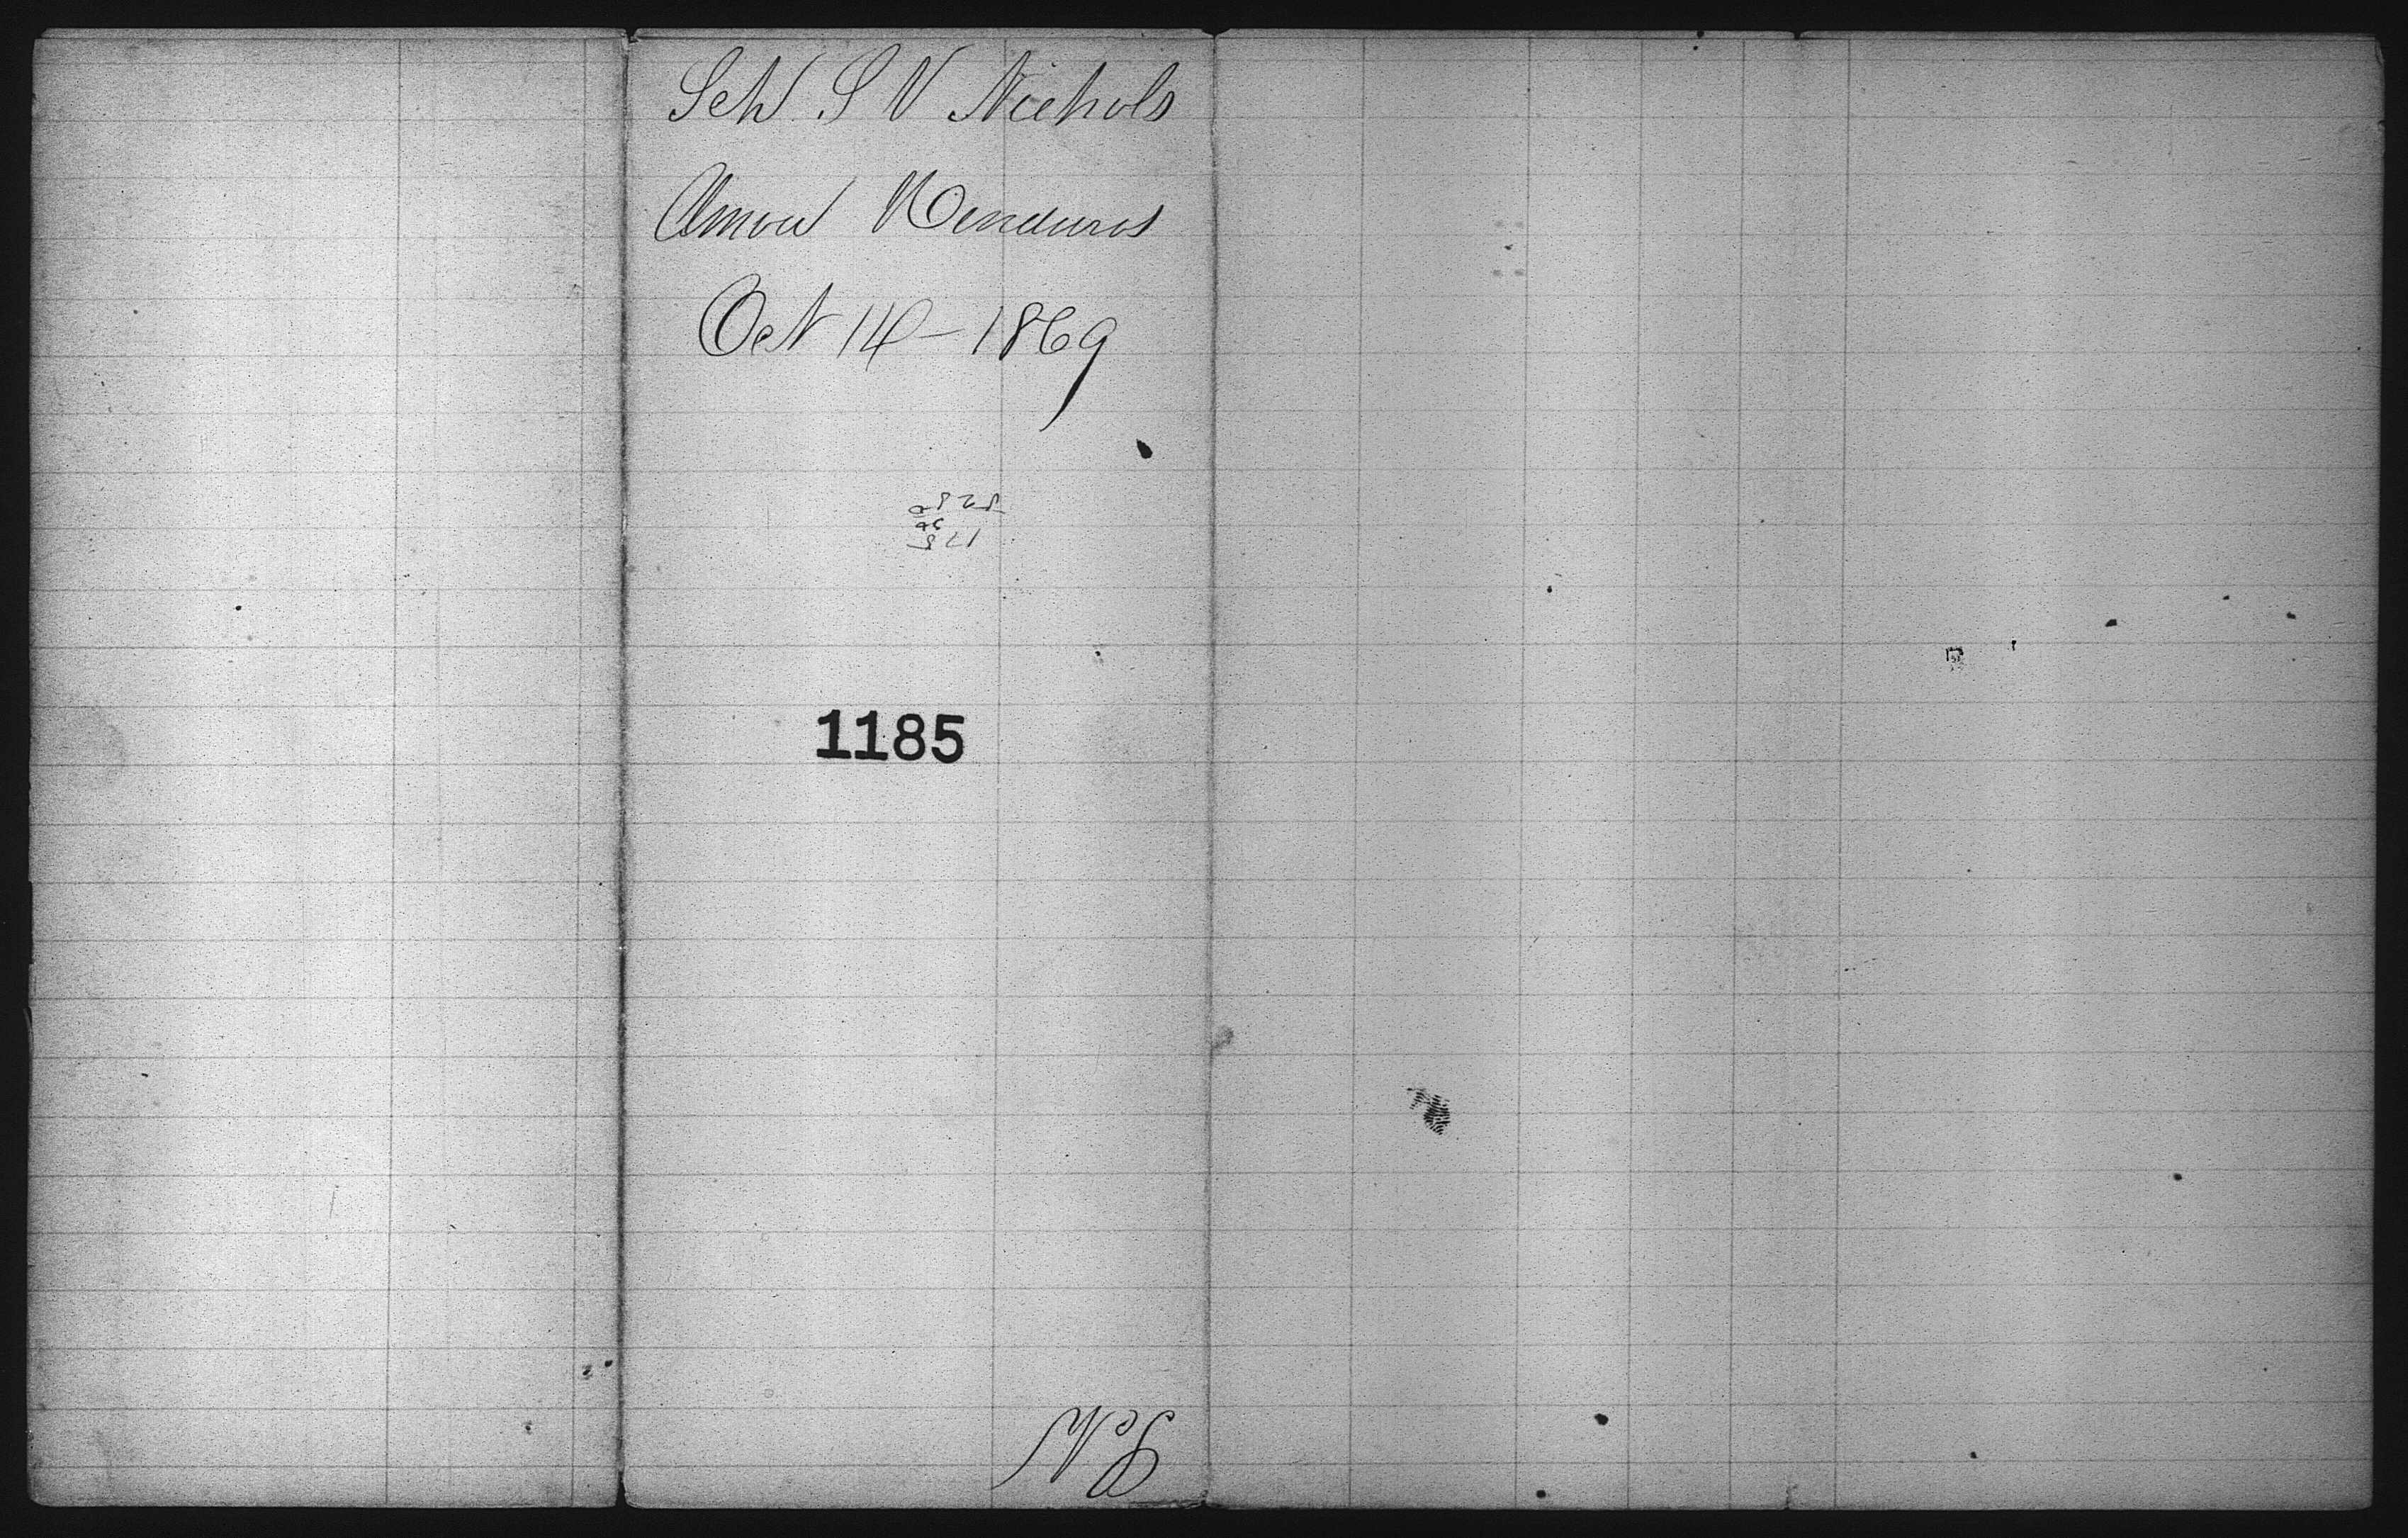 Sch S V Nichols
Omoa Honduras
Oct 14 - 1869
1185
No 8